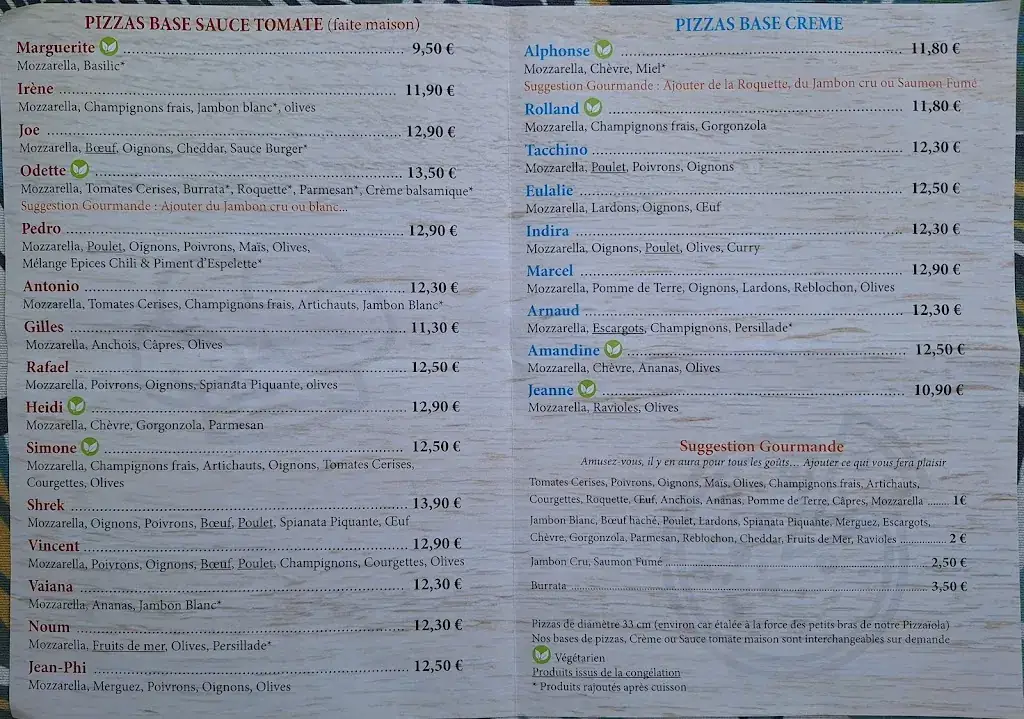 PIZZAS BASE SAUCE TOMATE (faite maison)
Marguerite ........ 9,50 €
Mozzarella, Basilic*
Irène ........ 11,90 €
Mozzarella, Champignons frais, Jambon blanc*, olives
Joe ........ 12,90 €
Mozzarella, Bœuf, Oignons, Cheddar, Sauce Burger*
Odette ........ 13,50 €
Mozzarella, Tomates Cerises, Burrata*, Roquette*, Parmesan*, Crème balsamique*
Suggestion Gourmande : Ajouter du Jambon cru ou blanc...
Pedro ........ 12,90 €
Mozzarella, Poulet, Oignons, Poivrons, Maïs, Olives,
Mélange Epices Chili & Piment d'Espelette*
Antonio ........ 12,30 €
Mozzarella, Tomates Cerises, Champignons frais, Artichauts, Jambon Blanc*
Gilles ........ 11,30 €
Mozzarella, Anchois, Câpres, Olives
Rafael ........ 12,50 €
Mozzarella, Poivrons, Oignons, Spianata Piquante, olives
Heidi ........ 12,90 €
Mozzarella, Chèvre, Gorgonzola, Parmesan
Simone ........ 12,50 €
Mozzarella, Champignons frais, Artichauts, Oignons, Tomates Cerises,
Courgettes, Olives
Shrek ........ 13,90 €
Mozzarella, Oignons, Poivrons, Bœuf, Poulet, Spianata Piquante, Œuf
Vincent ........ 12,90 €
Mozzarella, Poivrons, Oignons, Bœuf, Poulet, Champignons, Courgettes, Olives
Vaiana ........ 12,30 €
Mozzarella, Ananas, Jambon Blanc*
Noum ........ 12,30 €
Mozzarella, Fruits de mer, Olives, Persillade*
Jean-Phi ........ 12,50 €
Mozzarella, Merguez, Poivrons, Oignons, Olives
PIZZAS BASE CREME
Alphonse ........ 11,80 €
Mozzarella, Chèvre, Miel*
Suggestion Gourmande : Ajouter de la Roquette, du Jambon cru ou Saumon Fumé
Rolland ........ 11,80 €
Mozzarella, Champignons frais, Gorgonzola
Tacchino ........ 12,30 €
Mozzarella, Poulet, Poivrons, Oignons
Eulalie ........ 12,50 €
Mozzarella, Lardons, Oignons, Œuf
Indira ........ 12,30 €
Mozzarella, Oignons, Poulet, Olives, Curry
Marcel ........ 12,90 €
Mozzarella, Pomme de Terre, Oignons, Lardons, Reblochon, Olives
Arnaud ........ 12,30 €
Mozzarella, Escargots, Champignons, Persillade*
Amandine ........ 12,50 €
Mozzarella, Chèvre, Ananas, Olives
Jeanne ........ 10,90 €
Mozzarella, Ravioles, Olives
Suggestion Gourmande
Amusez-vous, il y en aura pour tous les goûts... Ajouter ce qui vous fera plaisir
Tomates Cerises, Poivrons, Oignons, Maïs, Olives, Champignons frais, Artichauts,
Courgettes, Roquette, Œuf, Anchois, Ananas, Pomme de Terre, Câpres, Mozzarella ........ 1€
Jambon Blanc, Bœuf haché, Poulet, Lardons, Spianata Piquante, Merguez, Escargots,
Chèvre, Gorgonzola, Parmesan, Reblochon, Cheddar, Fruits de Mer, Ravioles ........ 2 €
Jambon Cru, Saumon Fumé ........ 2,50 €
Burrata ........ 3,50 €
Pizzas de diamètre 33 cm (environ car étalée à la force des petits bras de notre Pizzaiola)
Nos bases de pizzas, Crème ou Sauce tomate maison sont interchangeables sur demande
Végétarien
Produits issus de la congélation
* Produits rajoutés après cuisson